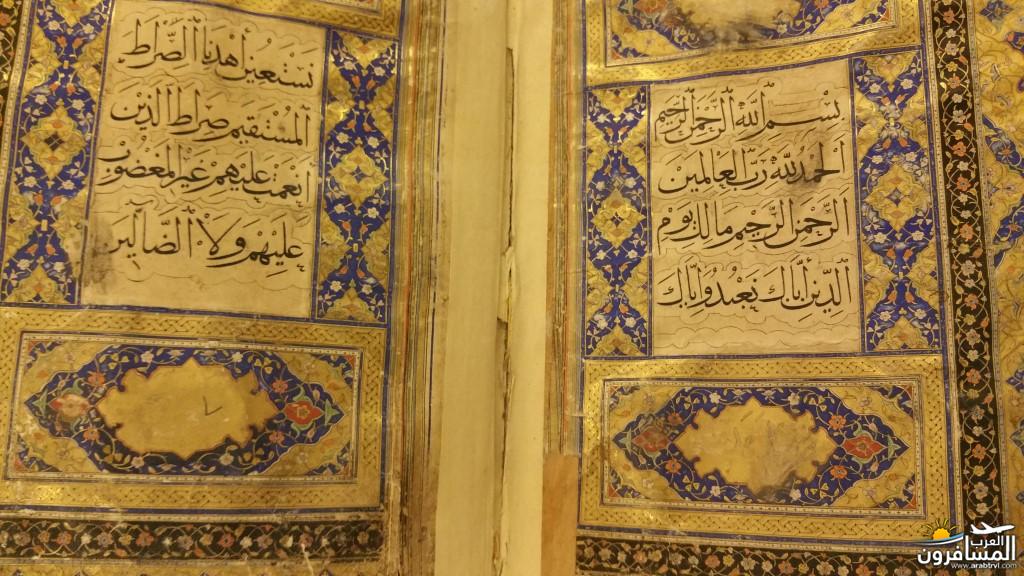 بسم الله الرحمن الرحيم
الحمد لله رب العالمين
الرحمن الرحيم مالك يوم
الدين اياك نعبد واياك
نستعين اهدنا الصراط
المستقيم صراط الذين
انعمت عليهم غير المغضوب
عليهم ولا الضالين
العرب
المسافرون
www.arabtrvl.com